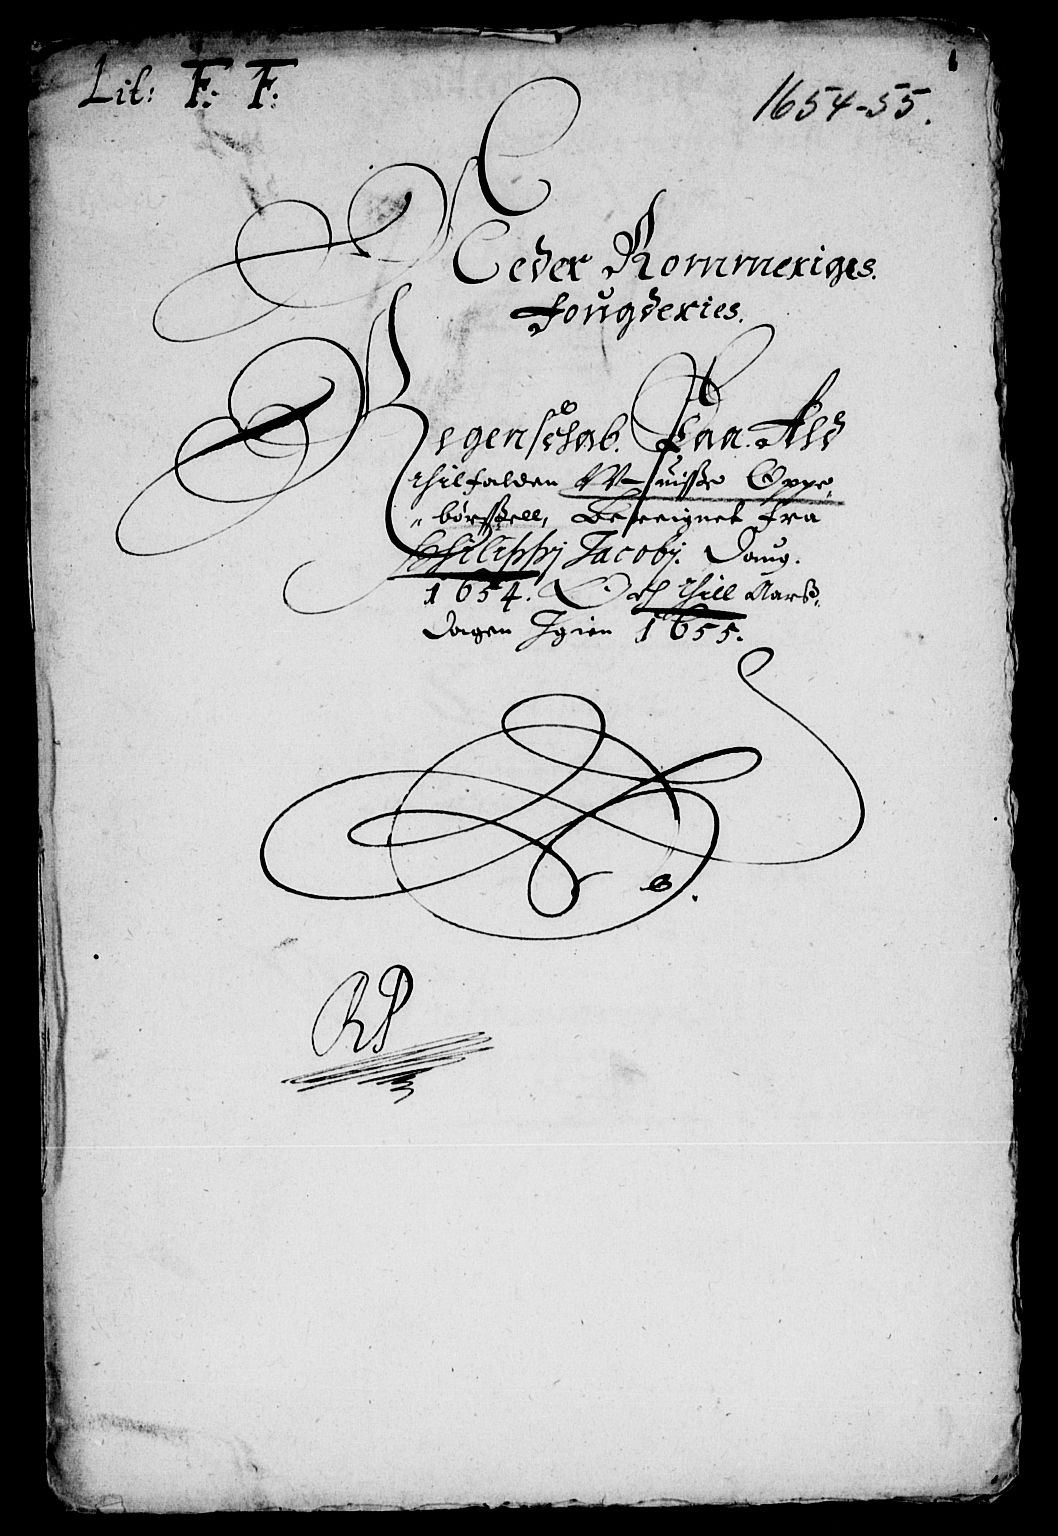 Lit: F: F:
1654-55.
1
Neder Rommeriges.
fougderies.
Regenschab. Paa. Ald
thilfalden W-uisße Oppe,
,, börsßell, Bereignet fra
Philippj Jacobj. Daug.
1654. Och thill Aarß,
Dagen Igien 1655.
RP